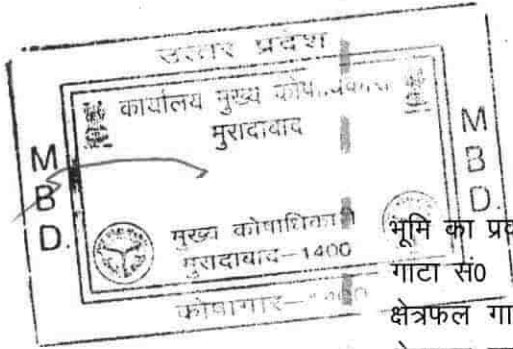 उत्तर प्रदेश
कार्यालय मुख्य
मुरादाबाद
M
B
D.
M
B
D.
मुख्य कोषाधिकारी
मुरादाबाद-1400
कोषागार-
भूमि का
गाटा सं0
क्षेत्रफल